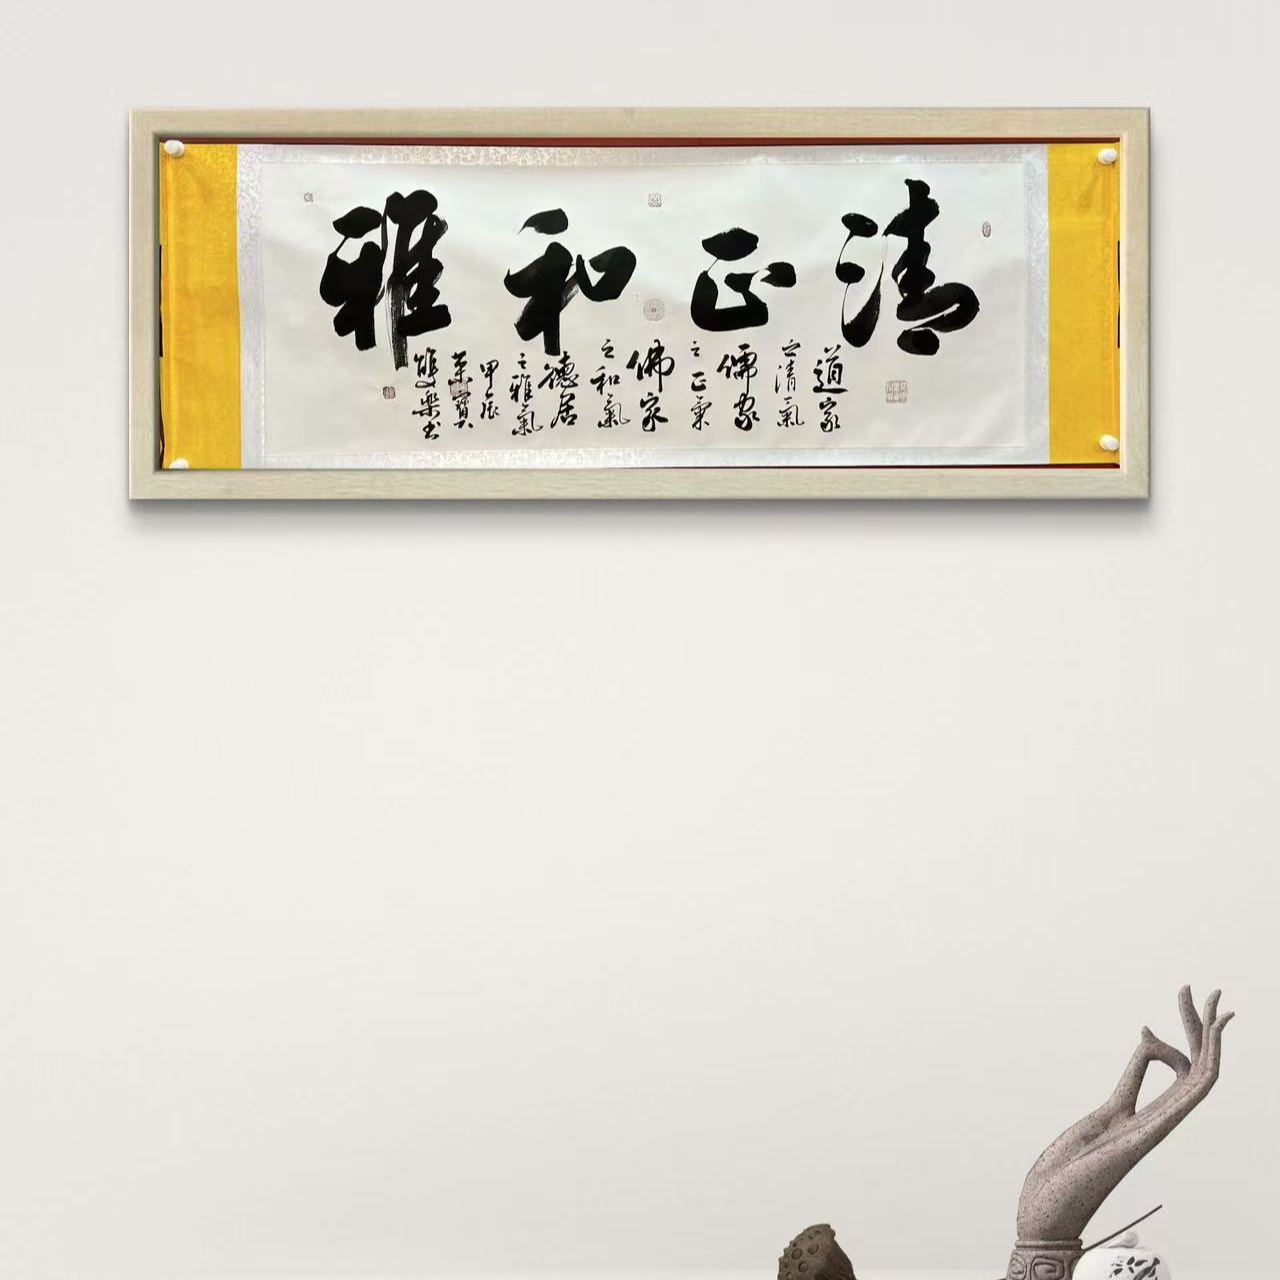 清正和雅
道家
之清氣
儒家
之正氣
佛家
之和氣
德居
之雅氣
甲辰
榮寶
雙樂书